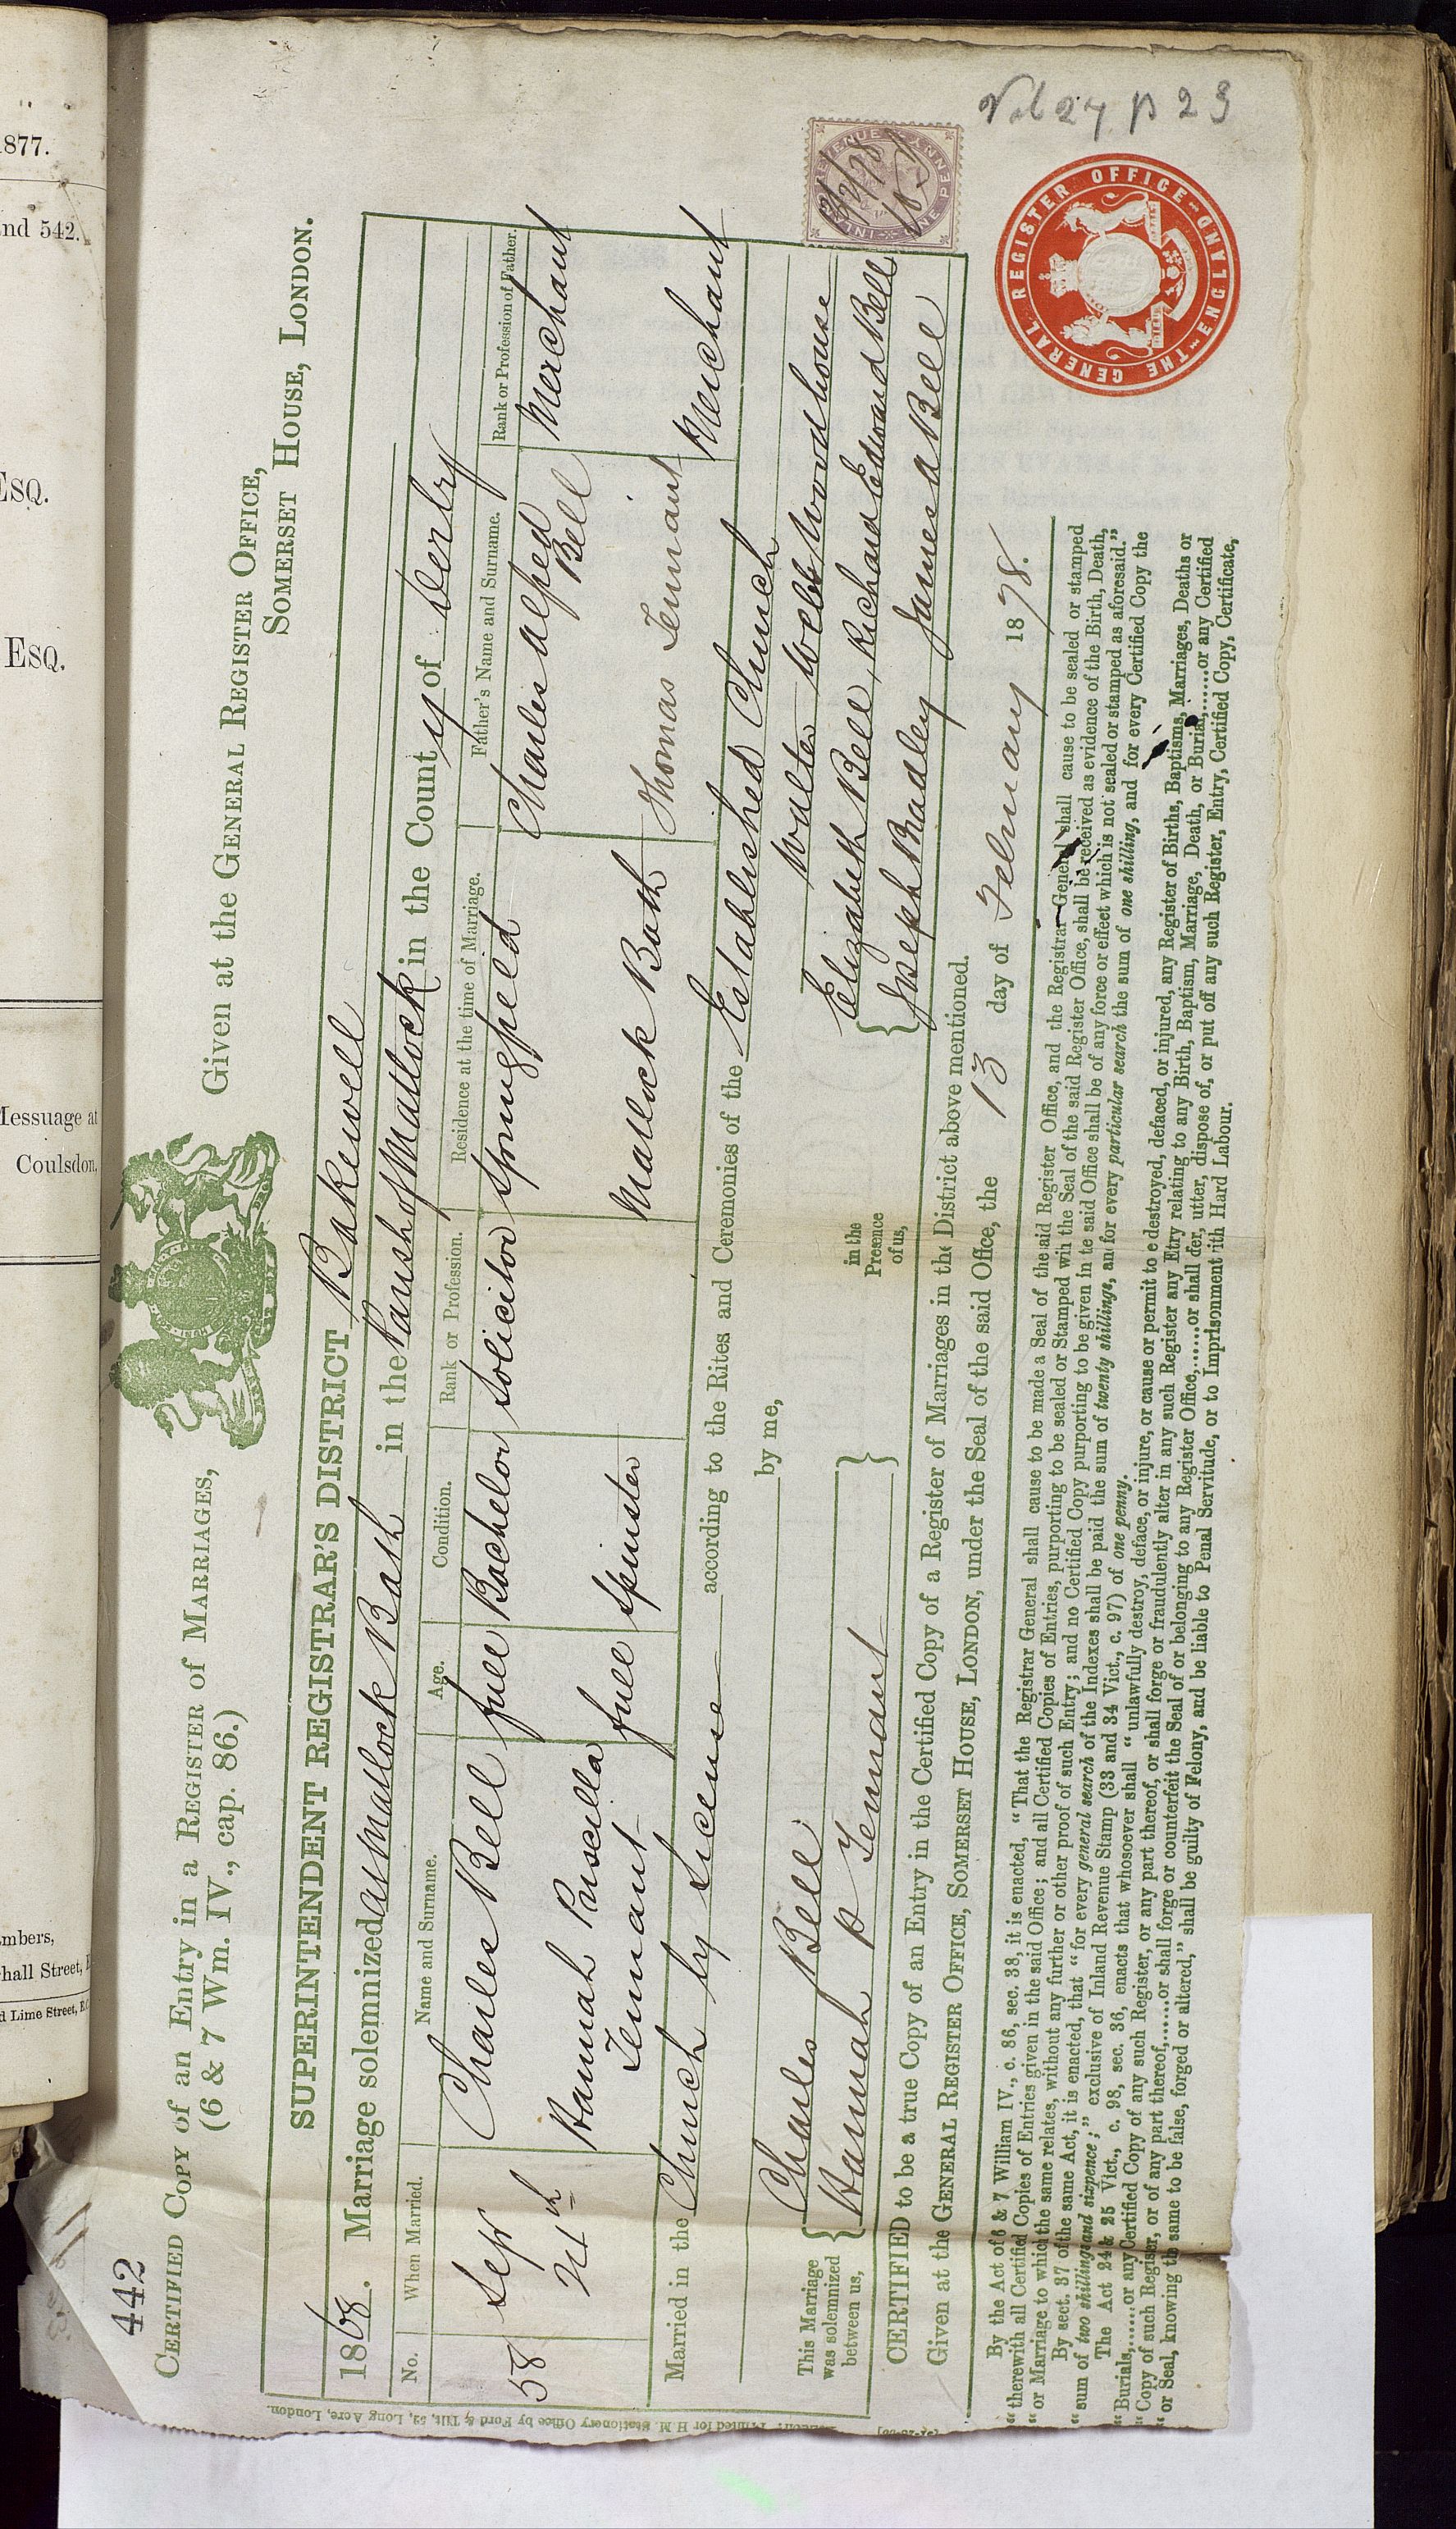 1877.
and 542.
ESQ.
ESQ.
Messuage at
Coulsdon,
Lime Street,
442
CERTIFIED COPY of an Entry in a REGISTER of MARRIAGES,
(6 & 7 Wm. IV., cap. 86.)
Given at the GENERAL REGISTER OFFICE,
SOMERSET HOUSE, LONDON.
SUPERINTENDENT REGISTRAR'S DISTRICT Bakewell
1868. Marriage solemnized at Matlock Bath in the Parish of Matlock in the County of Derby
No. When Married. Name and Surname. Age. Condition. Rank or Profession. Residence at the time of Marriage. Father's Name and Surname. Rank or Profession of Father.
58 Sept 24th Charles Bell full Bachelor Solicitor Springfield Charles Alfred Bell Merchant
Hannah Priscilla Tennant full Spinster Matlock Bath Thomas Tennant Merchant
Married in the Church by License according to the Rites and Ceremonies of the Established Church
by me, Walter Webb Woodhouse
This Marriage was solemnized between us, { Charles Bell
Hannah P Tennant } in the Presence of us, { Elizabeth Bell, Richard Edward Bell
Joseph Bradley James A Bell
CERTIFIED to be a true Copy of an Entry in the Certified Copy of a Register of Marriages in the District above mentioned.
Given at the GENERAL REGISTER OFFICE, SOMERSET HOUSE, LONDON, under the Seal of the said Office, the 13 day of February 1878.
By the Act of 6 & 7 William IV., c. 86, sec. 38, it is enacted, "That the Registrar General shall cause to be made a Seal of the said Register Office, and the Registrar General shall cause to be sealed or stamped
"therewith all Certified Copies of Entries given in the said Office; and all Certified Copies of Entries, purporting to be sealed or Stamped with the Seal of the said Register Office, shall be received as evidence of the Birth, Death,
"or Marriage to which the same relates, without any further or other proof of such Entry; and no Certified Copy purporting to be given in te said Office shall be of any force or effect which is not sealed or stamped as aforesaid."
By sect. 37 of the same Act, it is enacted, that "for every general search of the Indexes shall be paid the sum of twenty shillings, and for every particular search the sum of one shilling, and for every Certified Copy the
"sum of two shillings and sixpence;" exclusive of Inland Revenue Stamp (33 and 34 Vict., c. 97) of one penny.
The Act 24 & 25 Vict., c. 98, sec. 36, enacts that whosoever shall "unlawfully destroy, deface, or injure, or cause or permit to e destroyed, defaced, or injured, any Register of Births, Baptisms, Marriages, Deaths or
"Burials,......or any Certified Copy of any such Register, or any part thereof, or shall forge or fraudulently alter in any such Register any Etry relating to any Birth, Baptism, Marriage, Death, or Burial,......or any Certified
"Copy of such Register, or of any part thereof,......or shall forge or counterfeit the Seal of or belonging to any Register Office,......or shall der, utter, dispose of, or put off any such Register, Entry, Certified Copy, Certificate,
"or Seal, knowing the same to be false, forged or altered," shall be guilty of Felony, and be liable to Penal Servitude, or to Imprisonment ith Hard Labour.
INLAND REVENUE
ONE PENNY
THE GENERAL REGISTER OFFICE ENGLAND
Vol 27 p 23
Printed for H.M. Stationery Office by Ford & Tilt, 52, Long Acre, London.